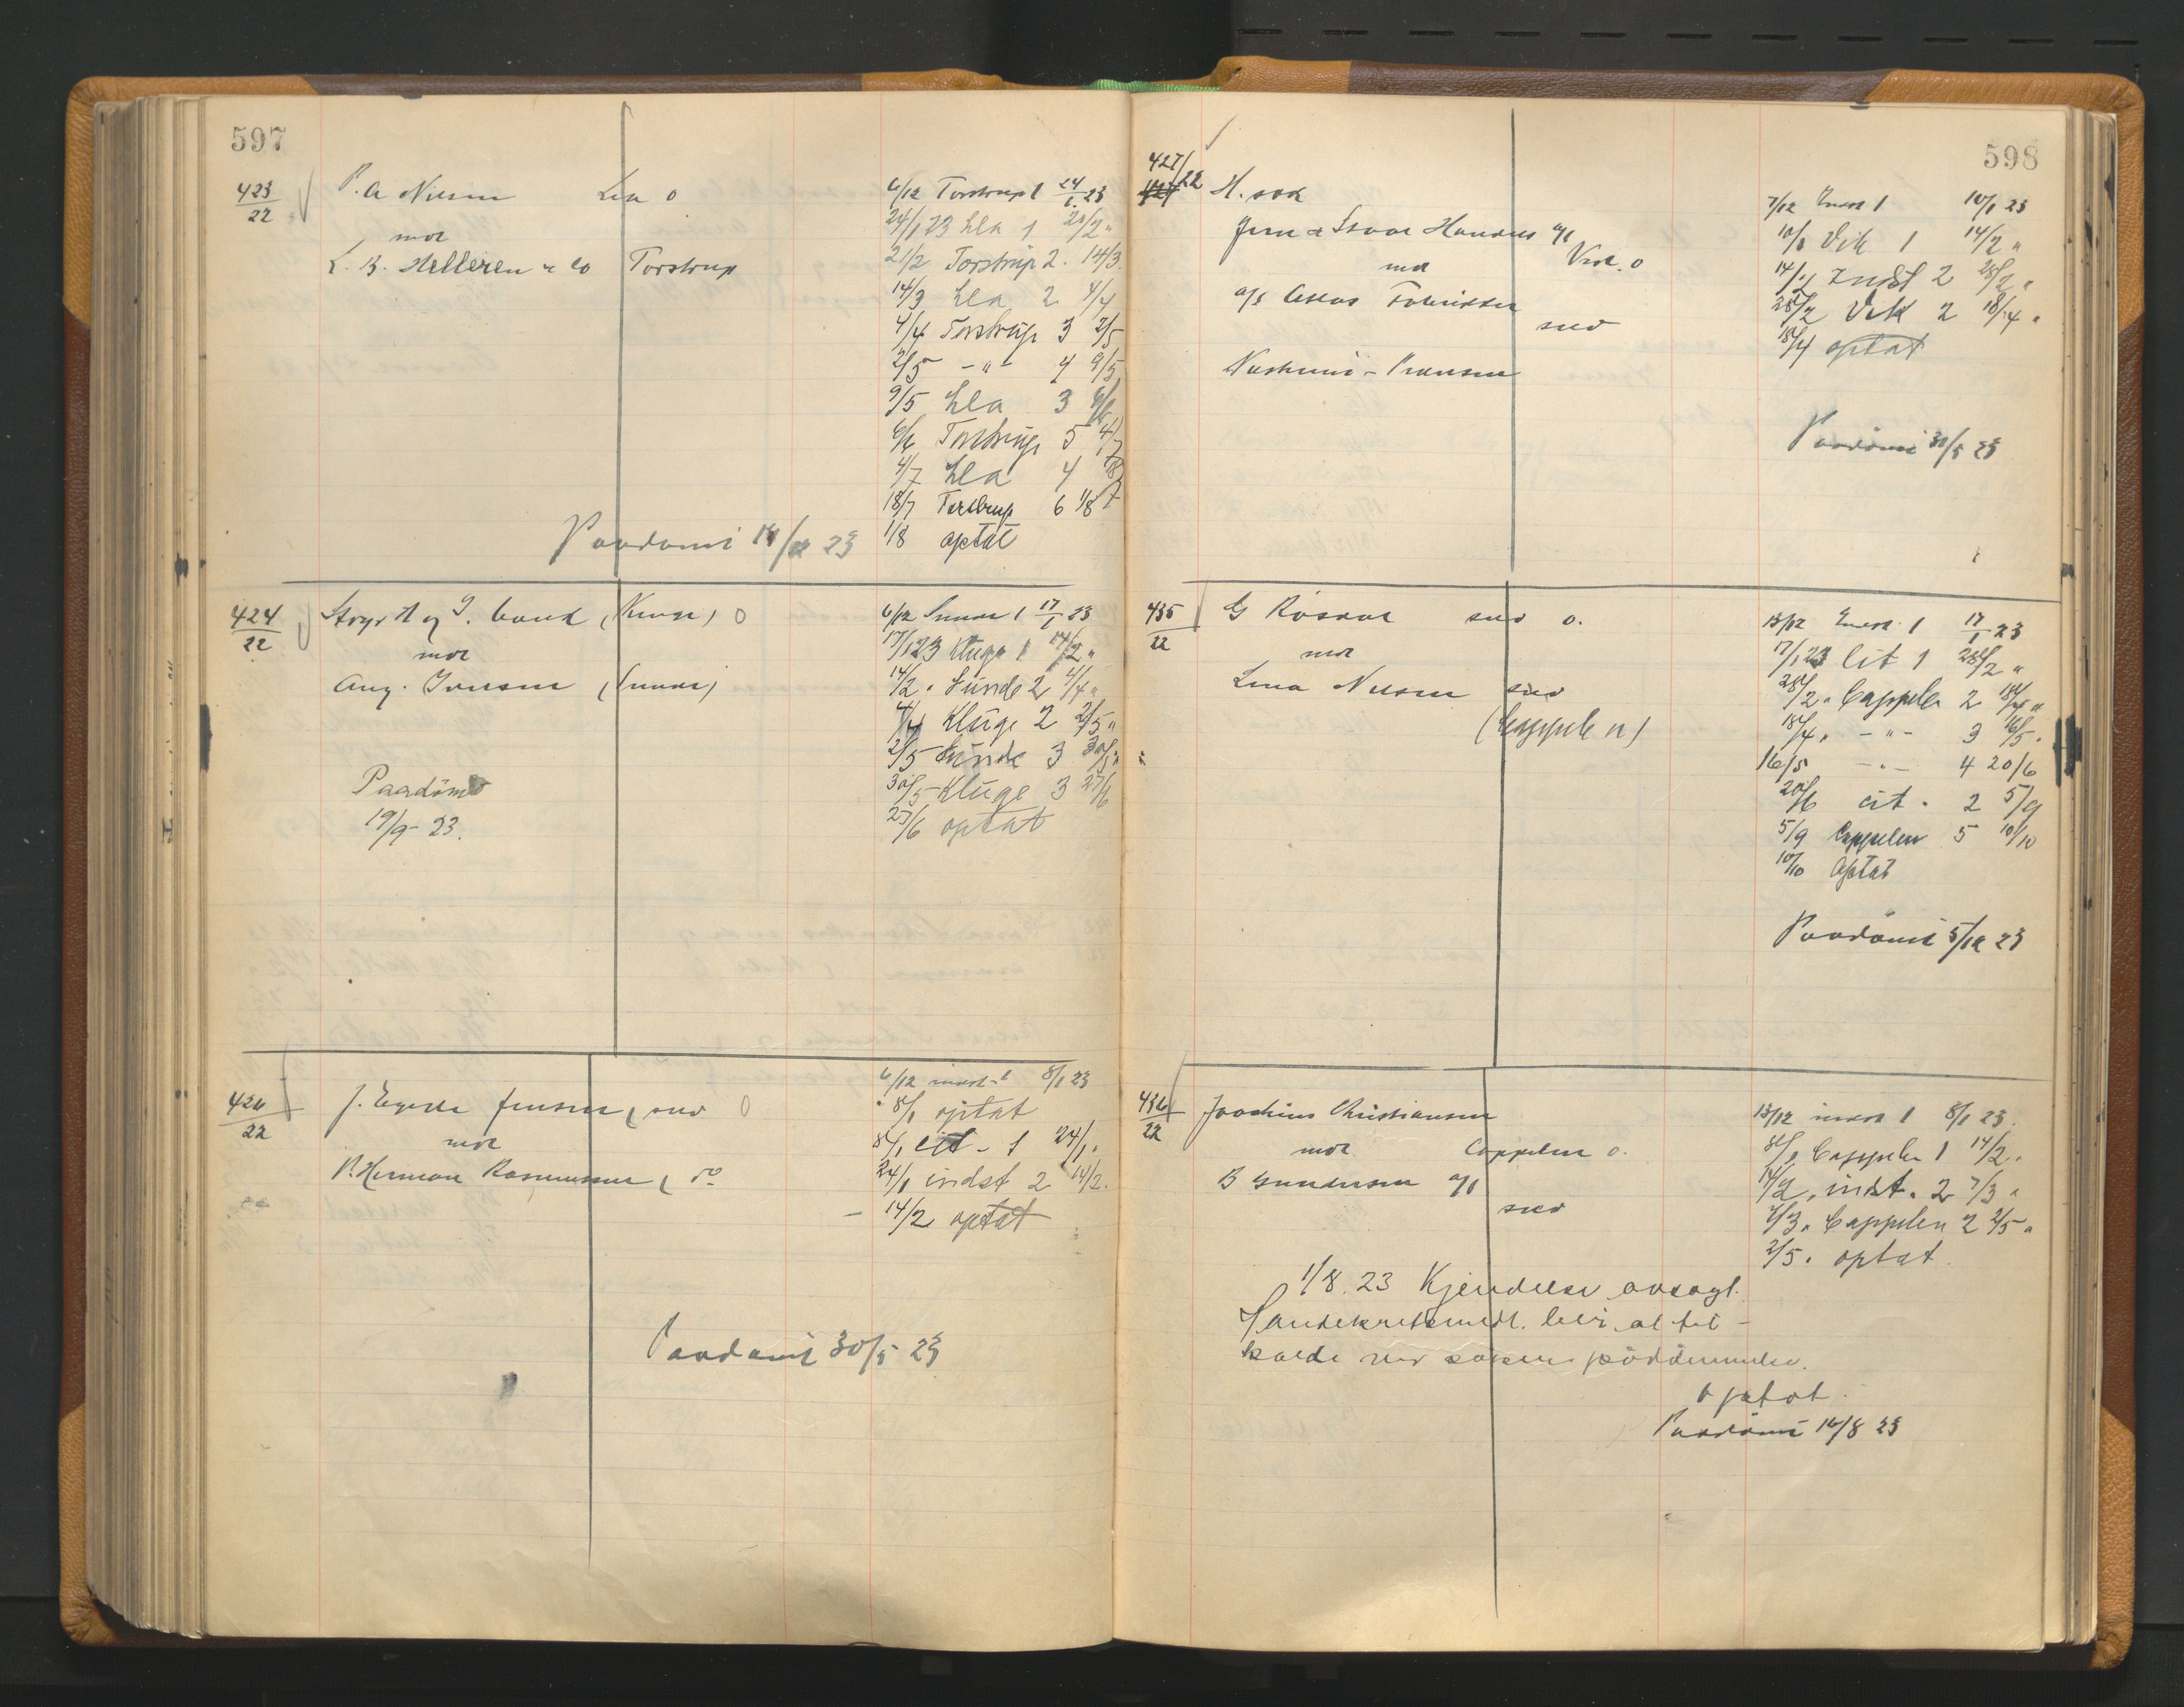 597
423/22 P. A. Nilsen Lea o
mot
L. B. Helleren & Co Torstrup
6/12 Torstrup 1 24/1 23
24/1 23 Lea 1 21/2 "
21/2 Torstrup 2. 14/3
14/3 Lea 2 4/4
4/4 Torstrup 3 2/5
2/5 -"- 4 9/5
9/5 Lea 3 6/6
6/6 Torstrup 5 4/7
4/7 Lea 4 18/7
18/7 Torstrup 6 1/8
1/8 optat
Paadömt 23
424/22 (Kluge) O
mot
Aug. Iversen (Sunde)
6/12 Sunde 1 17/1 23
17/1 23 Kluge 1 14/2 "
14/2 " Sunde 2 4/4 "
4/4 Kluge 2 2/5 "
2/5 Sunde 3 30/5 "
30/5 Kluge 3 27/6
27/6 optat
Paadömt
19/9- 23.
426/22 J. Egede Jensen (sed O
mot
P. Herman Rasmussen ( do
6/12 indst. 1 8/1 23
8/1 optat
8/1 cit - 1 24/1 "
24/1 indst 2 14/2.
- 14/2 optat
Paadömt 30/5 23
598
427/22 H. sak
Jern & Staal Handels A/S
mot Vik. o
A/S Atlas
sed
7/12 Indst 1 10/1 23
10/1 Vik 1 14/2 "
14/2 Indst 2 28/2 "
28/2 Vik 2 18/4 "
18/4 optat
Paadömt 30/5 23
435/22 G Rosdal sed o.
mot
Lena Nilsen sed
(Cappelen)
13/12 Indst. 1 17/1 23
17/1 23 Cit 1 28/2 "
28/2 " Cappelen 2 18/4 "
18/4 " -"- 3 16/5 "
16/5 -"- 4 20/6
20/6 cit. 2 5/9
5/9 Cappelen 5 10/10
10/10 Optat
Paadömt 5/12 23
436/22 Joachim Christiansen
mot Cappelen o.
B Gundersen A/S
sed
13/12 indst 1 8/1 23.
8/1 Cappelen 1 14/2 "
14/2 " indst. 2 7/3 "
7/3 " Cappelen 2 2/5 "
2/5 " optat.
1/8. 23 Kjendelse avsagt.
blir at til-
kalde ved sakens pådömmelse.
Optat.
Paadömt 16/8 23